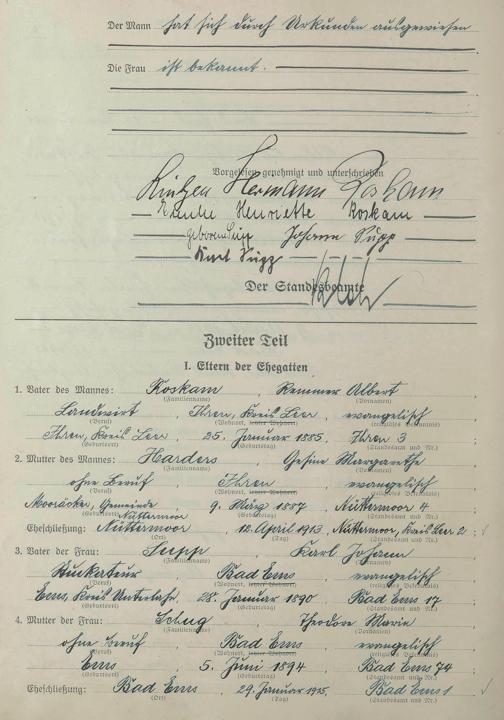 Der Mann hat sich durch Urkunden ausgewiesen
Die Frau ist bekannt.
Vorgelesen, genehmigt und unterschrieben
Hermann Roskam
Henriette Roskam
geborene Supp Johann Supp
Karl Supp
Der Standesbeamte
Zweiter Teil
I. Eltern der Ehegatten
1. Vater des Mannes: Roskam Remmer Albert
(Familienname) (Vornamen)
Landwirt Ihren, Kreis Leer evangelisch
(Beruf) (Wohnort, letzter Wohnort) (religiöses Bekenntnis)
Ihren, Kreis Leer, 25. Januar 1885, Ihren 3
(Geburtsort) (Geburtstag) (Standesamt und Nr.)
2. Mutter des Mannes: Harders, Gesine Margarethe
(Familienname) (Vornamen)
ohne Beruf Ihren evangelisch
(Beruf) (Wohnort, letzter Wohnort) (religiöses Bekenntnis)
Mooräcker, Gemeinde
Nüttermoor 9. März 1887 Nüttermoor 4
(Geburtsort) (Geburtstag) (Standesamt und Nr.)
Eheschließung: Nüttermoor, 12. April 1913, Nüttermoor, Kreis Leer 2
(Ort) (Tag) (Standesamt und Nr.)
3. Vater der Frau: Supp Karl Johann
(Familienname) (Vornamen)
Stuckateur, Bad Ems, evangelisch
(Beruf) (Wohnort, letzter Wohnort) (religiöses Bekenntnis)
Ems, Kreis Unterlahn, 28. Januar 1890 Bad Ems 17
(Geburtsort) (Geburtstag) (Standesamt und Nr.)
4. Mutter der Frau: Schug Theodore Marie
(Familienname) (Vornamen)
ohne Beruf, Bad Ems evangelisch
(Beruf) (Wohnort, letzter Wohnort) (religiöses Bekenntnis)
Ems 5. Juni 1894 Bad Ems 74
(Geburtsort) (Geburtstag) (Standesamt und Nr.)
Eheschließung: Bad Ems, 29. Januar 1915, Bad Ems 1
(Ort) (Tag) (Standesamt und Nr.)